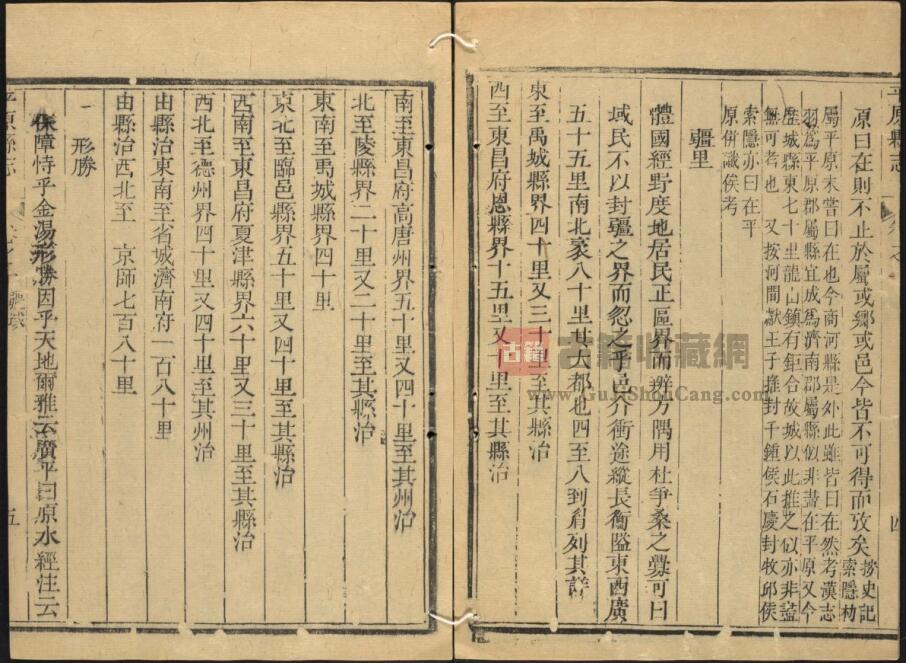 平原縣志
原曰在則不止於屬或鄉或邑今皆不可得而攷矣
按史記索隱劫
屬平原未嘗曰在也今南河縣是外此雖皆曰在然考漢志
羽爲平原郡屬縣宜成爲濟南郡屬縣似非盡在平原又今
歴城縣東七十里龍山鎮有鉅合故城以此推之似亦非盡
無可考也 又按河間獻王子推封千鍾侯石慶封牧邱侯
索隱亦曰在平
原併識俟考
疆里
體國經野度地居民正區界而辨方隅用杜爭桑之釁可曰
域民不以封疆之界而忽之乎邑介衝途縱長衡隘東西廣
五十五里南北袤八十里其大都也四至八到肩列其詳
東至禹城縣界四十里又三十里至其縣治
西至東昌府恩縣界十五里又 里至其縣治
四
南至東昌府高唐州界五十里又四十里至其州治
北至陵縣界二十里又二十里至其縣治
東南至禹城縣界四十里
東北至臨邑縣界五十里又四十里至其縣治
西南至東昌府夏津縣界六十里又三十里至其縣治
西北至德州界四十里又四十里至其州治
由縣治東南至省城濟南府一百八十里
由縣治西北至 京師七百八十里
形勝
保障恃乎金湯形勝因乎天地爾雅云廣平曰原水經注云
平原縣志
五
古籍
古籍收藏網
www.GuJiShouCang.com